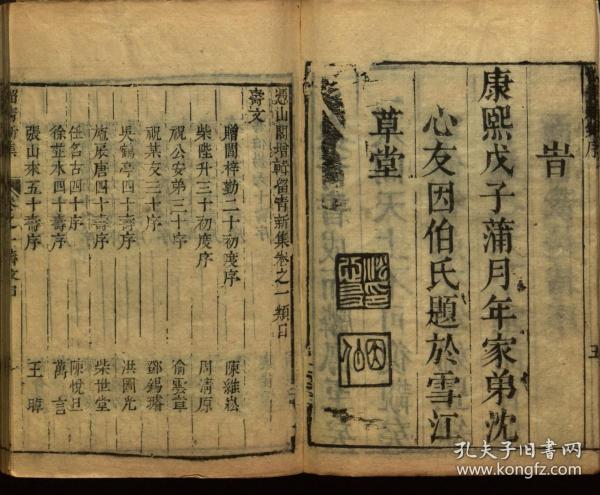 旹
康熙戊子蒲月年家弟沈
心友因伯氏題於雪江
草堂
序
五
憑山閣增輯留青新集卷之一類目
壽文
贈閻梓勤二十初度序 陳維崧
柴陛升三十初度序 周清原
祝公安弟三十序 俞雲章
祝某文三十序 鄧錫璿
吳鶴亭四十壽序 洪圖光
施展唐四十壽序 柴世堂
任名古四十序 陳悅旦
徐並水四十壽序 萬言
張山來五十壽序 王晫
留青新集 卷之一 壽文目
孔夫子旧书网
www.kongfz.com